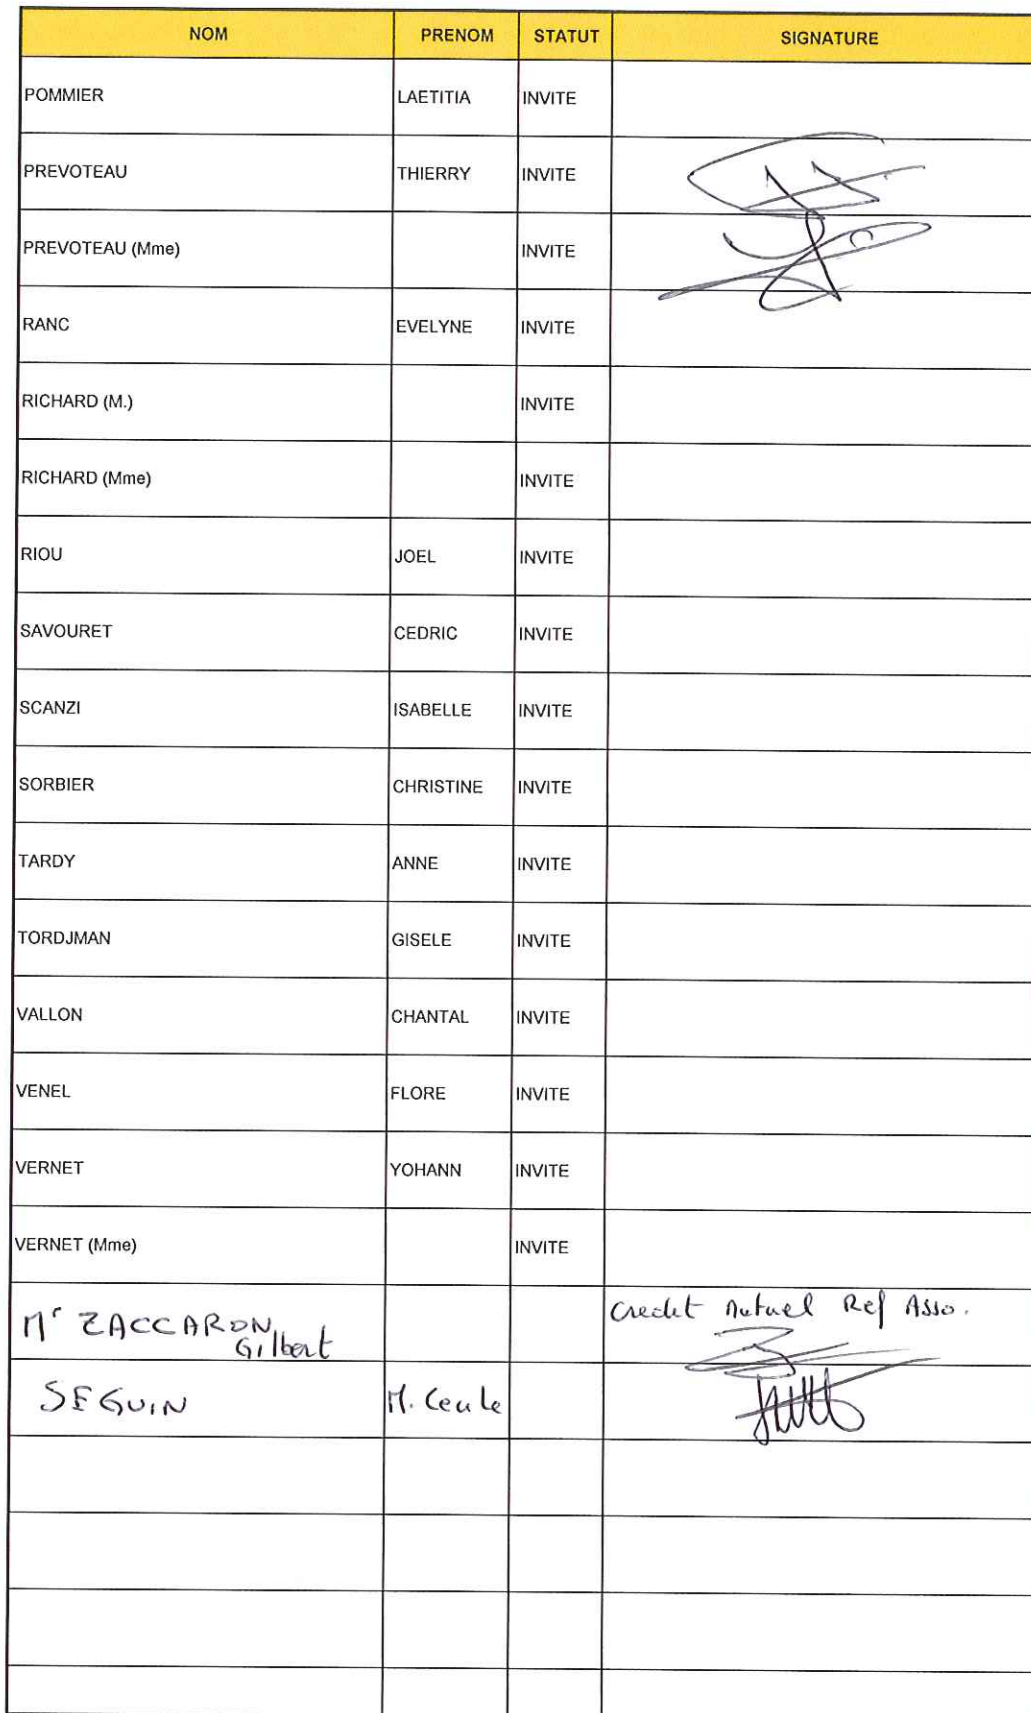 NOM PRENOM STATUT SIGNATURE
POMMIER LAETITIA INVITE
PREVOTEAU THIERRY INVITE
PREVOTEAU (Mme) INVITE
RANC EVELYNE INVITE
RICHARD (M.) INVITE
RICHARD (Mme) INVITE
RIOU JOEL INVITE
SAVOURET CEDRIC INVITE
SCANZI ISABELLE INVITE
SORBIER CHRISTINE INVITE
TARDY ANNE INVITE
TORDJMAN GISELE INVITE
VALLON CHANTAL INVITE
VENEL FLORE INVITE
VERNET YOHANN INVITE
VERNET (Mme) INVITE
Mr ZACCARON Credit Mutuel Ref Asso.
Gilbert
SEGUIN M. Cecile